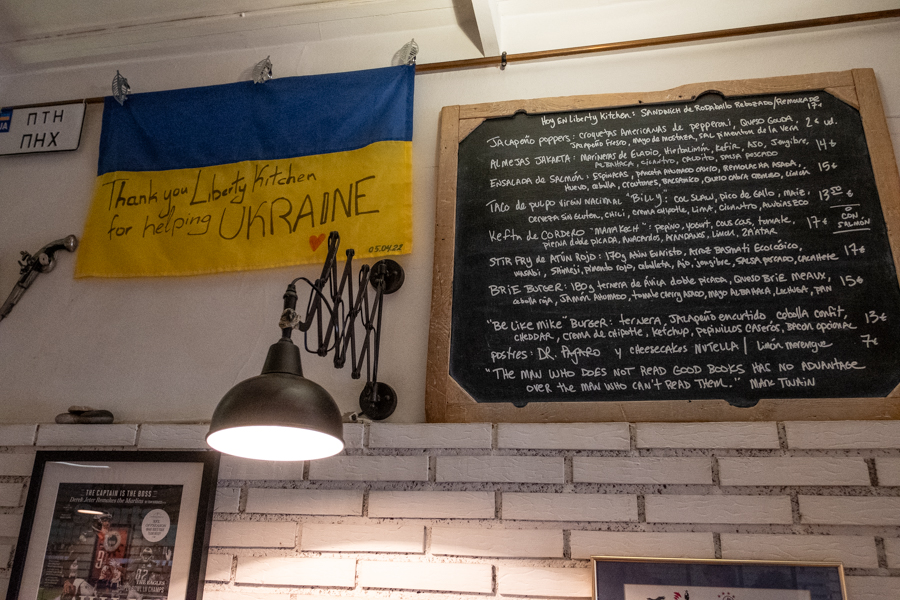 UA
ПТН
ПНХ
Thank you Liberty Kitchen
for helping UKRAINE
05.04.22
Hoy en Liberty Kitchen: SANDWICH de Rosaballo Rebozado/Remoulade
17€
JALAPEÑO POPPERS: CROQUETAS AMERICANAS de pepperoni, QUESO GOUDA, 2€ ud.
JALAPEÑO FRESCO, MAYO de MOSTAZA, SAL pimentón de la Vera
ALMEJAS JAKARTA: MARINERAS de ELADIO, Hierbalimón, Kefir, AJO, Jengibre, 14€
ALBAHACA, cilantro, CALDITO, SALSA PESCADO
ENSALADA de SALMÓN: ESPINACAS, AHUMADO, REMOLACHA ASADA, 15€
HUEVO, cebolla, croutones, BALSÁMICO, QUESO CABRA, LIMÓN
TACO de pulpo VIRGIN NACIONAL "Billy": COL SLAW, pico de GALLO, MAIZ, 13,50€
CERVEZA SIN GLUTEN, CHILI, CREMA chipotle, LIMA, CILANTRO
Ó CON SALMÓN
Kefta de CORDERO "MAMAKECH": pepino, yogurt, COUS COUS, tomate, 17€
pierna doble picada, ANACARDOS, ARÁNDANOS, LIMÓN, ZA'ATAR
STIR FRY de ATÚN ROJO: 170g ATÚN EVARISTO, ARROZ BASMATI ECOLÓGICO, 17€
WASABI, Shimeji, pimiento rojo, cebolleta, AJO, jengibre, SALSA PESCADO, CACAHUETE
BRIE BURGER: 180g ternera de ÁVILA doble picada, QUESO BRIE MEAUX, 15€
cebolla roja, JAMÓN AHUMADO, tomate cherry ASADO, MAYO ALBAHACA, LECHUGA, PAN
"Be Like Mike" BURGER: ternera, JALAPEÑO encurtido, cebolla confit, 13€
CHEDDAR, crema de chipotle, ketchup, pepinillos CASEROS, BACON opcional
postres: DR. PAJARO y cheesecakes NUTELLA | Limón merengue 7€
"THE MAN WHO DOES NOT READ GOOD BOOKS HAS NO ADVANTAGE
OVER THE MAN WHO CAN'T READ THEM." MARK TWAIN
THE CAPTAIN IS THE BOSS